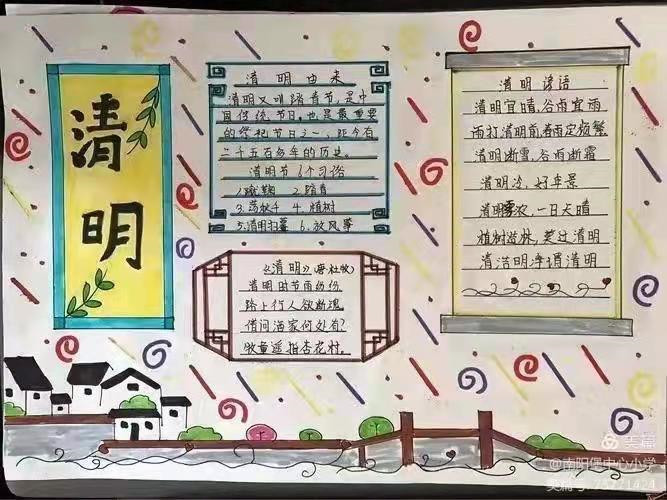 清明
清明由来
清明又叫踏青节,是中
国传统节日,也是最重要
的祭祀节日之一,距今有
二千五百多年的历史。
清明节6个习俗
1.蹴鞠 2.踏青
3.荡秋千 4.植树
5.清明扫墓 6.放风筝
《清明》(唐·杜牧)
清明时节雨纷纷
路上行人欲断魂
借问酒家何处有?
牧童遥指杏花村。
清明谚语
清明宜晴,谷雨宜雨
雨打清明前,春雨定频繁
清明断雪,谷雨断霜
清明冷,好年景
清明雾浓,一日天晴
植树造林,莫过清明
清洁明净渭清明
美篇
@南阳堡中心小学
美篇号:25271424